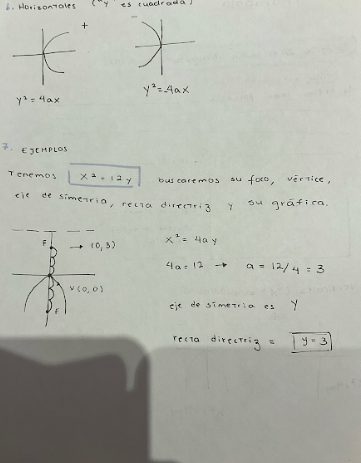 6. Horizontales ("y" es cuadrada)
+
-
y² = 4ax
y² = -4ax
7. EJEMPLOS
Tenemos x² = 12y buscaremos su foco, vértice,
eje de simetría, recta directriz y su gráfica.
F
→ (0,3)
V(0,0)
F
x² = 4ay
4a = 12 → a = 12/4 = 3
eje de simetría es Y
recta directriz = y = 3